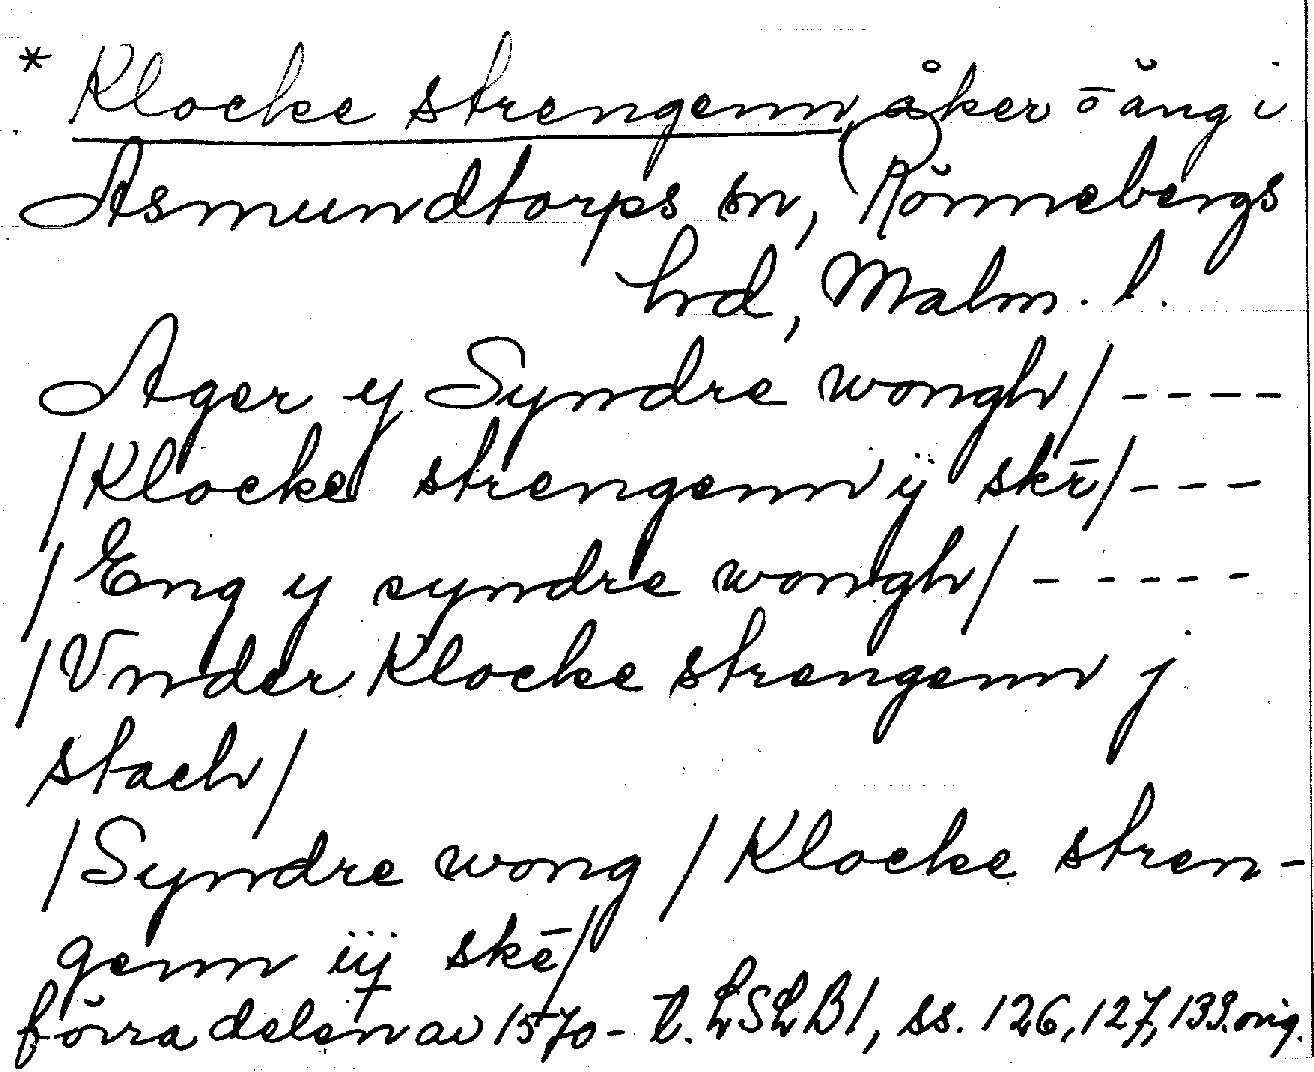 * Klocke strengenn, åker o äng i
Asmundtorps sn, Rönnebergs
hrd, Malm. l.
Ager y Syndre wongh/ ----
/Klocke strengenn ij skē/ ---
/Eng y syndre wongh/ -----
/Vnder Klocke strengenn j
stach/
/Syndre wong / Klocke stren-
genn iij skē/
förra delen av 1570-t. LSLB1, ss. 126, 127, 133. orig.